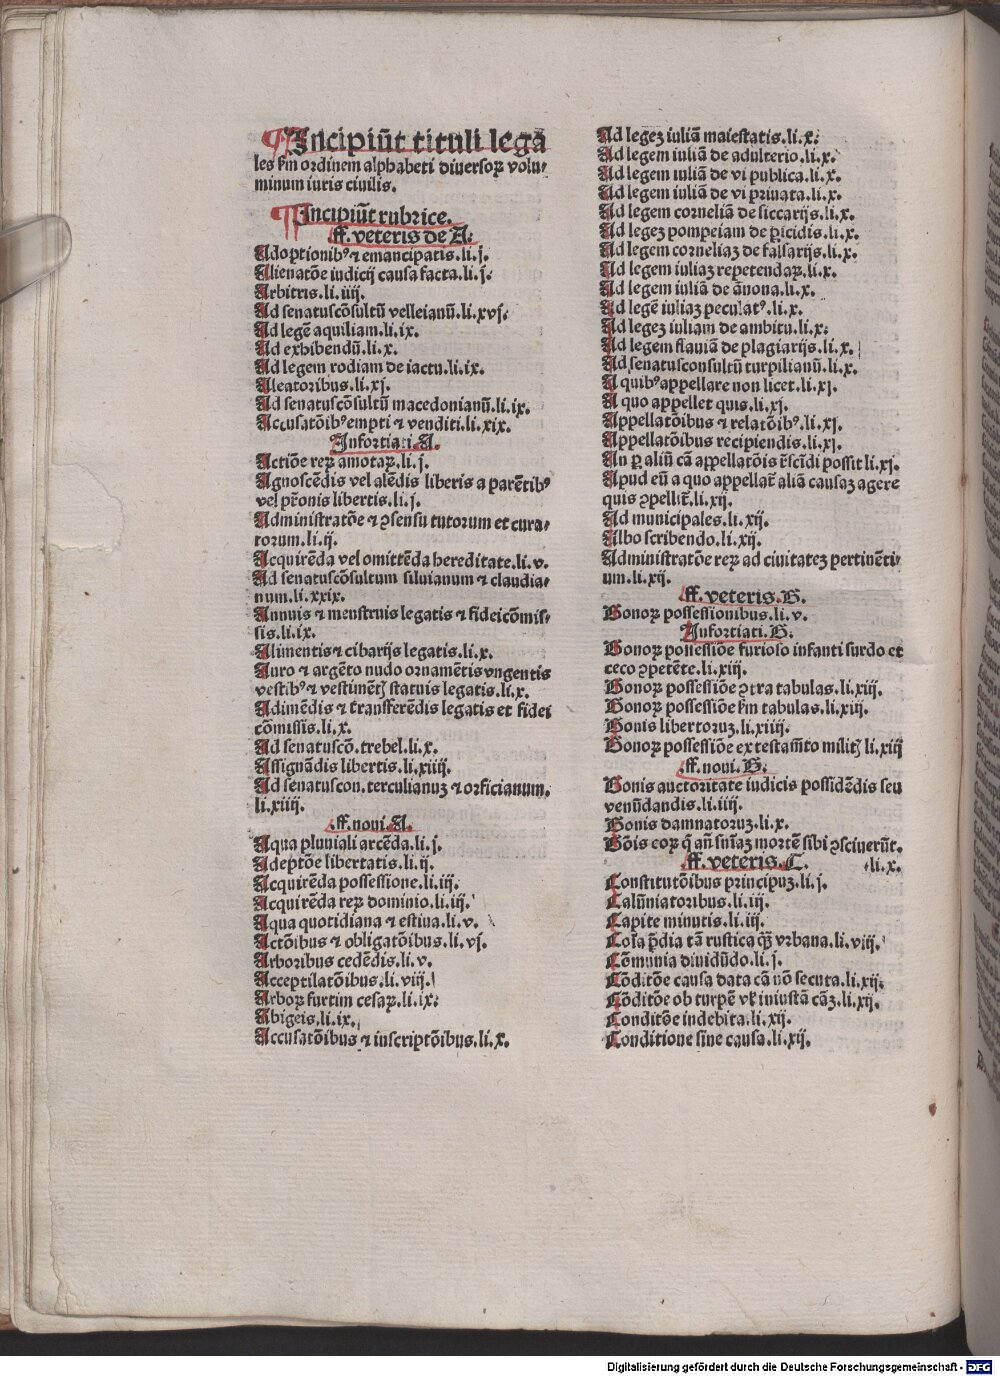 ¶Incipiūt tituli legā
les ẜm ordinem alphabeti diuersoꝝ volu⸗
minum iuris ciuilis.
¶Incipiūt rubrice.
ff. veteris de A.
Adoptionibꝰ ⁊ emancipatis.li.j.
Alienatōe iudicij causa facta.li.j.
Arbitris.li.iiij.
Ad senatuscōsultū velleianū.li.xvj.
Ad legē aquiliam.li.ix.
Ad exhibendū.li.x.
Ad legem rodiam de iactu.li.ix.
Aleatoribus.li.xj.
Ad senatuscōsultū macedonianū.li.ix.
Accusatōibꝰ empti ⁊ venditi.li.xix.
Infortiati.A.
Actiōe reꝝ amotaꝝ.li.j.
Agnoscēdis vel alēdis liberis a parētibꝰ
vel pr̄onis libertis.li.j.
Administratōe ⁊ ꝯsensu tutorum et cura⸗
torum.li.ij.
Acquirēda vel omittēda hereditate.li.v.
Ad senatuscōsultum siluianum ⁊ claudia⸗
num.li.xxix.
Annuis ⁊ menstruis legatis ⁊ fideicōmis⸗
sis.li.ix.
Alimentis ⁊ cibarijs legatis.li.x.
Auro ⁊ argēto nudo ornamētis vngentis
vestibꝰ ⁊ vestimētꝭ statuis legatis.li.x.
Adimēdis ⁊ trāsferēdis legatis et fidei
cōmissis.li.x.
Ad senatuscō.trebel.li.x.
Assignādis libertis.li.xiiij.
Ad senatuscon.terculianuꝫ ⁊ orficianum.
li.xiiij.
ff. noui.A.
Aqua pluuiali arcēda.li.j.
Adeptōe libertatis.li.ij.
Acquirēda possessione.li.iij.
Acquirēda reꝝ dominio.li.iij.
Aqua quotidiana ⁊ estiua.li.v.
Actōibus ⁊ obligatōibus.li.vj.
Arboribus cedēdis.li.v.
Acceptilatōibus.li.viij.
Arboꝝ furtim cesaꝝ.li.ix.
Abigeis.li.ix.
Accusatōibus ⁊ inscriptōibus.li.x.
Ad legeꝫ iuliā maiestatis.li.x.
Ad legem iuliā de adulterio.li.x.
Ad legem iuliā de vi publica.li.x.
Ad legem iuliā de vi priuata.li.x.
Ad legem corneliā de siccarijs.li.x.
Ad legeꝫ pompeiam de ꝑicidis.li.x.
Ad legem corneliaꝫ de falsarijs.li.x.
Ad legem iuliaꝫ repetendaꝝ.li.x.
Ad legem iuliā de ānona.li.x.
Ad legē iuliaꝫ peculatꝰ.li.x.
Ad legeꝫ iuliam de ambitu.li.x.
Ad legem flauiā de plagiarijs.li.x.
Ad senatusconsultū turpilianū.li.x.
A quibꝰ appellare non licet.li.xj.
A quo appellet quis.li.xj.
Appellatōibus ⁊ relatōibꝰ.li.xj.
Appellatōibus recipiendis.li.xj.
An ꝑ aliū cā appellatōis r̄scīdi possit li.xj.
Apud eū a quo appellat̄ aliā causaꝫ agere
quis ꝯpellit̄.li.xij.
Ad municipales.li.xij.
Albo scribendo.li.xij.
Administratōe reꝝ ad ciuitateꝫ pertinēti⸗
um.li.xij.
ff. veteris.B.
Bonoꝝ possessionibus.li.v.
Infortiati.B.
Bonoꝝ possessiōe furioso infanti surdo et
ceco ꝯpetēte.li.xiij.
Bonoꝝ possessiōe ꝯtra tabulas.li.xiij.
Bonoꝝ possessiōe ẜm tabulas.li.xiij.
Bonis libertoruꝫ.li.xiiij.
Bonoꝝ possessiōe ex testam̄to militꝭ li.xiij
ff. noui.B.
Bonis auctoritate iudicis possidēdis seu
venūdandis.li.iiij.
Bonis damnatoruꝫ.li.x.
Bōis eoꝝ q̄ an̄ sn̄iaꝫ mortē sibi ꝯsciuerūt.
ff. veteris.C. li.x.
Constitutōibus principuꝫ.li.j.
Calūniatoribus.li.iij.
Capite minutis.li.iij.
Coīa p̄dia tā rustica qꝫ vrbana.li.viij.
Cōmunia diuidūdo.li.j.
Cōditōe causa data cā nō secuta.li.xij.
Cōditōe ob turpē vꝉ iniustā cāꝫ.li.xij.
Conditōe indebita.li.xij.
Conditione sine causa.li.xij.
Digitalisierung gefördert durch die Deutsche Forschungsgemeinschaft - DFG